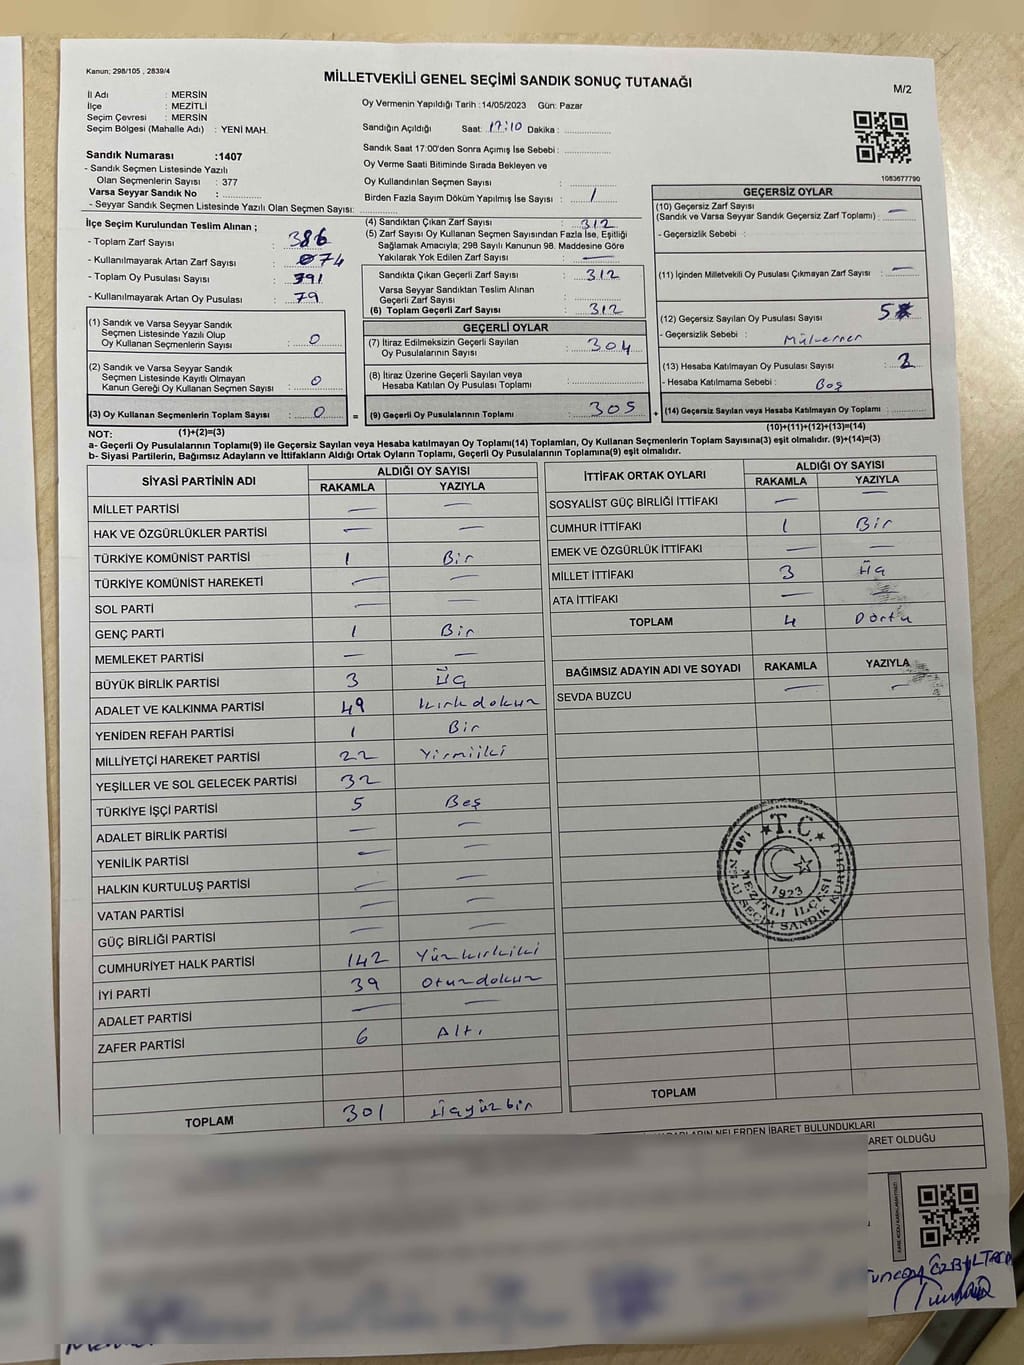 Kanun: 298/105 , 2839/4
MİLLETVEKİLİ GENEL SEÇİMİ SANDIK SONUÇ TUTANAĞI
M/2
İl Adı : MERSİN
İlçe : MEZİTLİ
Seçim Çevresi : MERSİN
Seçim Bölgesi (Mahalle Adı) : YENİ MAH.
Oy Vermenin Yapıldığı Tarih : 14/05/2023 Gün: Pazar
Sandığın Açıldığı Saat: 17:10 Dakika :
Sandık Saat 17:00'den Sonra Açımış İse Sebebi :
Oy Verme Saati Bitiminde Sırada Bekleyen ve
Oy Kullandırılan Seçmen Sayısı :
Birden Fazla Sayım Döküm Yapılmış İse Sayısı : 1
Sandık Numarası :1407
- Sandık Seçmen Listesinde Yazılı
Olan Seçmenlerin Sayısı : 377
Varsa Seyyar Sandık No :
- Seyyar Sandık Seçmen Listesinde Yazılı Olan Seçmen Sayısı:
1083677790
İlçe Seçim Kurulundan Teslim Alınan ;
- Toplam Zarf Sayısı : 386
- Kullanılmayarak Artan Zarf Sayısı : 074
- Toplam Oy Pusulası Sayısı : 391
- Kullanılmayarak Artan Oy Pusulası : 79
(1) Sandık ve Varsa Seyyar Sandık
Seçmen Listesinde Yazılı Olup
Oy Kullanan Seçmenlerin Sayısı : 0
(2) Sandık ve Varsa Seyyar Sandık
Seçmen Listesinde Kayıtlı Olmayan
Kanun Gereği Oy Kullanan Seçmen Sayısı : 0
(3) Oy Kullanan Seçmenlerin Toplam Sayısı : 0 =
(1)+(2)=(3)
(4) Sandıktan Çıkan Zarf Sayısı : 312
(5) Zarf Sayısı Oy Kullanan Seçmen Sayısından Fazla İse, Eşitliği
Sağlamak Amacıyla; 298 Sayılı Kanunun 98. Maddesine Göre
Yakılarak Yok Edilen Zarf Sayısı : —
Sandıkta Çıkan Geçerli Zarf Sayısı : 312
Varsa Seyyar Sandıktan Teslim Alınan
Geçerli Zarf Sayısı :
(6) Toplam Geçerli Zarf Sayısı : 312
GEÇERLİ OYLAR
(7) İtiraz Edilmeksizin Geçerli Sayılan
Oy Pusulalarının Sayısı : 304
(8) İtiraz Üzerine Geçerli Sayılan veya
Hesaba Katılan Oy Pusulası Toplamı :
(9) Geçerli Oy Pusulalarının Toplamı : 305 +
GEÇERSİZ OYLAR
(10) Geçersiz Zarf Sayısı
(Sandık ve Varsa Seyyar Sandık Geçersiz Zarf Toplamı) : —
- Geçersizlik Sebebi :
(11) İçinden Milletvekili Oy Pusulası Çıkmayan Zarf Sayısı : —
(12) Geçersiz Sayılan Oy Pusulası Sayısı : 5
- Geçersizlik Sebebi : Mükerrer
(13) Hesaba Katılmayan Oy Pusulası Sayısı : 2
- Hesaba Katılmama Sebebi : Boş
(14) Geçersiz Sayılan veya Hesaba Katılmayan Oy Toplamı :
(10)+(11)+(12)+(13)=(14)
NOT:
a- Geçerli Oy Pusulalarının Toplamı(9) ile Geçersiz Sayılan veya Hesaba katılmayan Oy Toplamı(14) Toplamları, Oy Kullanan Seçmenlerin Toplam Sayısına(3) eşit olmalıdır. (9)+(14)=(3)
b- Siyasi Partilerin, Bağımsız Adayların ve İttifakların Aldığı Ortak Oyların Toplamı, Geçerli Oy Pusulalarının Toplamına(9) eşit olmalıdır.
SİYASİ PARTİNİN ADI
ALDIĞI OY SAYISI
RAKAMLA YAZIYLA
MİLLET PARTİSİ — —
HAK VE ÖZGÜRLÜKLER PARTİSİ — —
TÜRKİYE KOMÜNİST PARTİSİ 1 Bir
TÜRKİYE KOMÜNİST HAREKETİ — —
SOL PARTİ — —
GENÇ PARTİ 1 Bir
MEMLEKET PARTİSİ — —
BÜYÜK BİRLİK PARTİSİ 3 Üç
ADALET VE KALKINMA PARTİSİ 49 kırkdokuz
YENİDEN REFAH PARTİSİ 1 Bir
MİLLİYETÇİ HAREKET PARTİSİ 22 Yirmiiki
YEŞİLLER VE SOL GELECEK PARTİSİ 32
TÜRKİYE İŞÇİ PARTİSİ 5 Beş
ADALET BİRLİK PARTİSİ — —
YENİLİK PARTİSİ — —
HALKIN KURTULUŞ PARTİSİ — —
VATAN PARTİSİ — —
GÜÇ BİRLİĞİ PARTİSİ — —
CUMHURİYET HALK PARTİSİ 142 Yüzkırkiki
İYİ PARTİ 39 Otuzdokuz
ADALET PARTİSİ — —
ZAFER PARTİSİ 6 Altı
TOPLAM 301 Üçyüzbir
İTTİFAK ORTAK OYLARI
ALDIĞI OY SAYISI
RAKAMLA YAZIYLA
SOSYALİST GÜÇ BİRLİĞİ İTTİFAKI — —
CUMHUR İTTİFAKI 1 Bir
EMEK VE ÖZGÜRLÜK İTTİFAKI — —
MİLLET İTTİFAKI 3 Üç
ATA İTTİFAKI — —
TOPLAM 4 Dört
BAĞIMSIZ ADAYIN ADI VE SOYADI RAKAMLA YAZIYLA
SEVDA BUZCU — —
T.C.
1923
MEZİTLİ İLÇESİ
TOPLAM
NELERDEN İBARET BULUNDUKLARI
ARET OLDUĞU